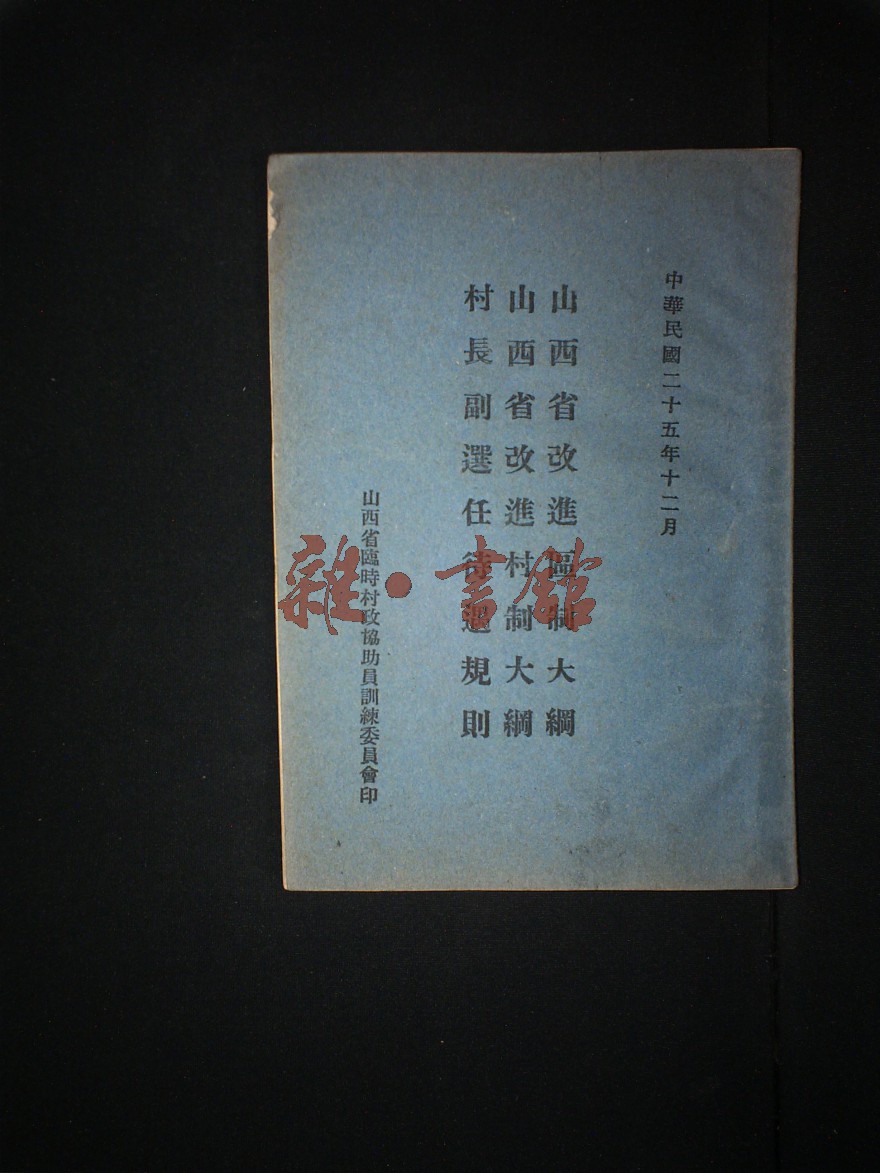 中華民國二十五年十二月
山西省改進區制大綱
山西省改進村制大綱
村長副選任待遇規則
山西省臨時村政協助員訓練委員會印
雜·書館